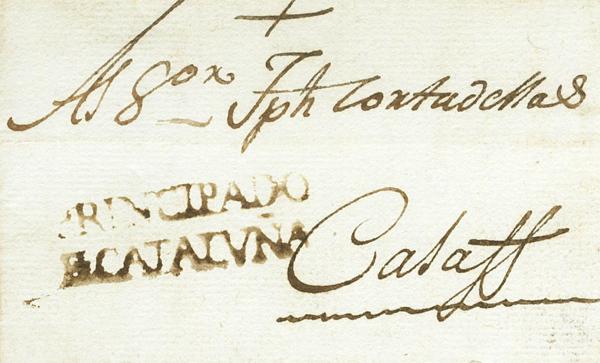 Al Sor Jph Cortadellas
PRINCIPADO
D CATALVÑA
Calaff